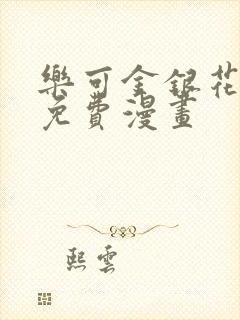 樂可金銀花
免費漫畫
熙雲